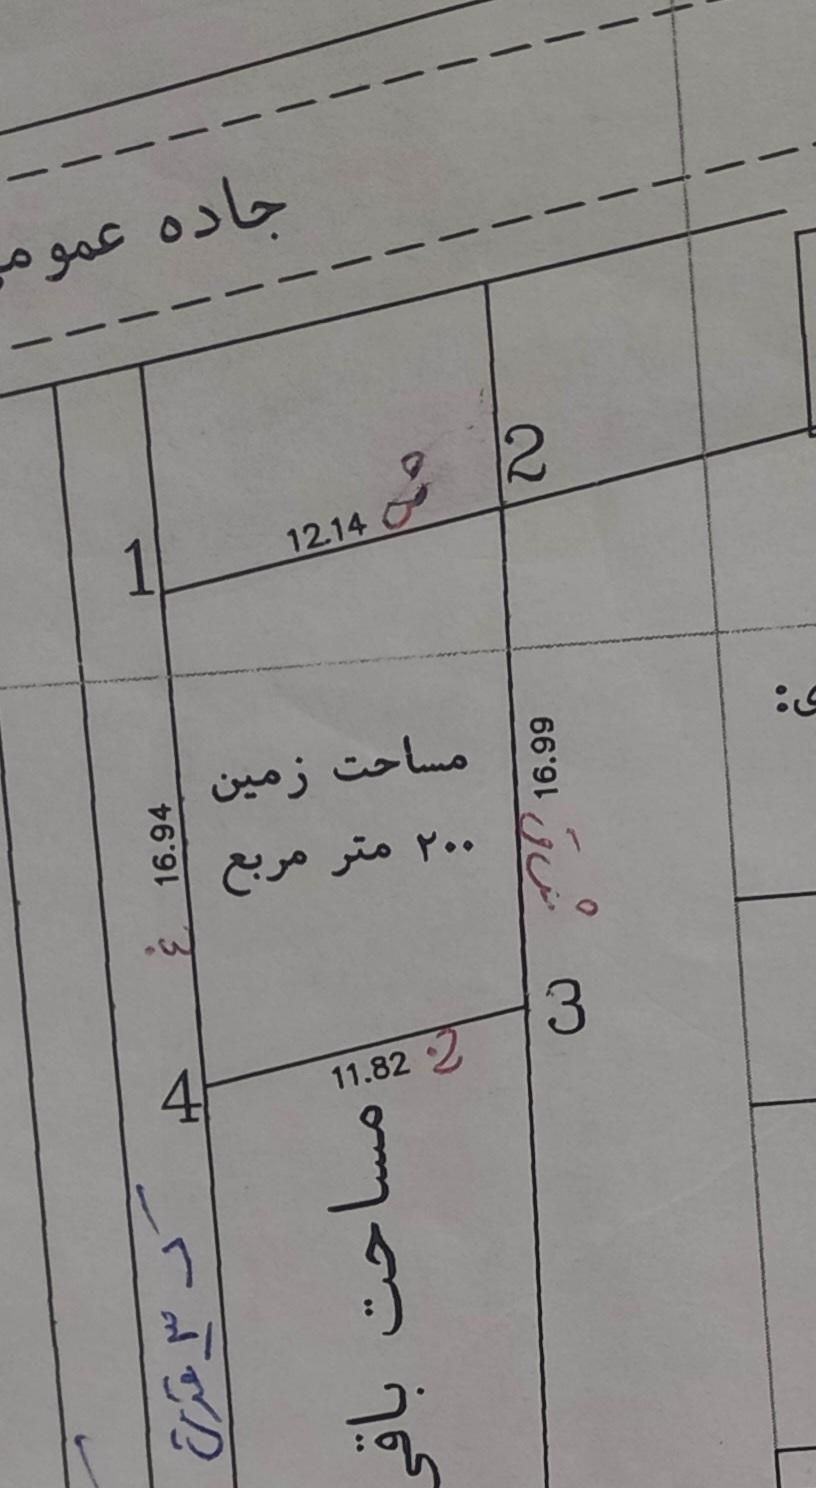 جاده عمومی
2
12.14
ش
1
ی:
مساحت زمین
16.99
شرق
۲۰۰ متر مربع
16.94
غ
3
11.82
ج
4
مساحت باقی